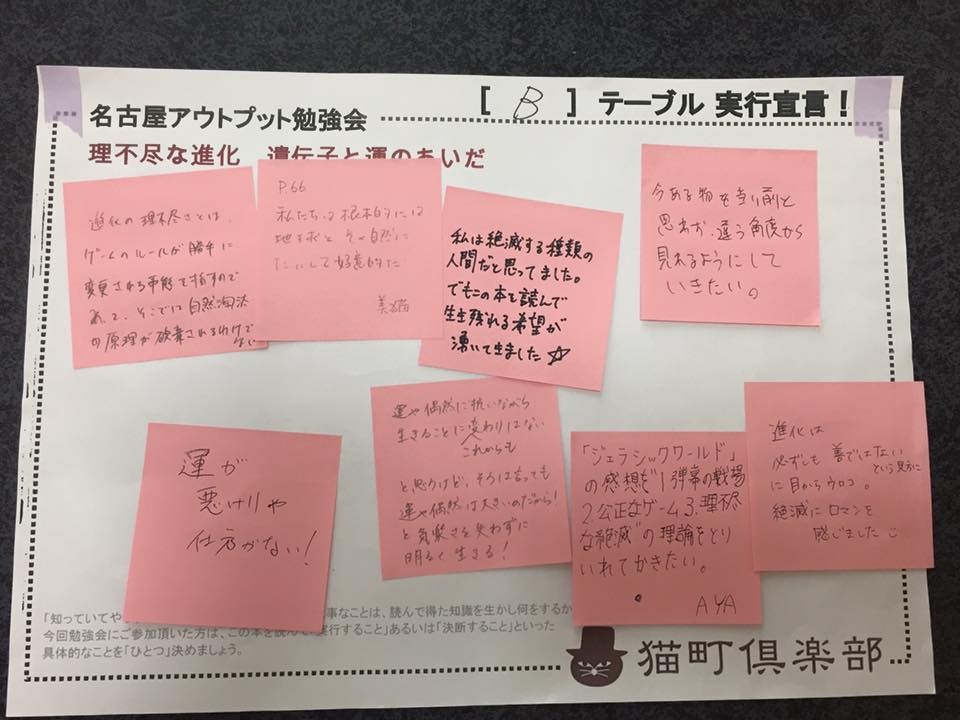 [ B ] テーブル 実行宣言！
名古屋アウトプット勉強会
理不尽な進化 遺伝子と運のあいだ
進化の理不尽さとは、
ゲームのルールが勝手に
変更される事態を指すので
あって、そこでは自然淘汰
の原理が破棄されるわけで
ない
P.66
私たちは根本的には
地球とその自然に
たいして好意的だ
美猫
私は絶滅する種類の
人間だと思ってました。
でもこの本を読んで
生き残れる希望が
湧いて来ました☆
今ある物を当り前と
思わず、違う角度から
見れるようにして
いきたい。
運が
悪けりゃ
仕方がない！
運や偶然に抗いながら
生きることに変わりはない
これからも
と思うけど、そうは言っても
運や偶然は大きいのだから！
と気楽さを失わずに
明るく生きる！
「ジェラシックワールド」
の感想を"1弾幕の戦場
2.公正なゲーム3.理不尽
な絶滅"の理論をとり
いれてかきたい。
AYA
進化は
必ずしも善ではない
という見方に
に目からウロコ。
絶滅にロマンを
感じました
「知っていてや
事なことは、読んで得た知識を生かし何をするか
今回勉強会にご参加頂いた方は、この本を読んで「実行すること」あるいは「決断すること」といった
具体的なことを「ひとつ」決めましょう。
猫町倶楽部